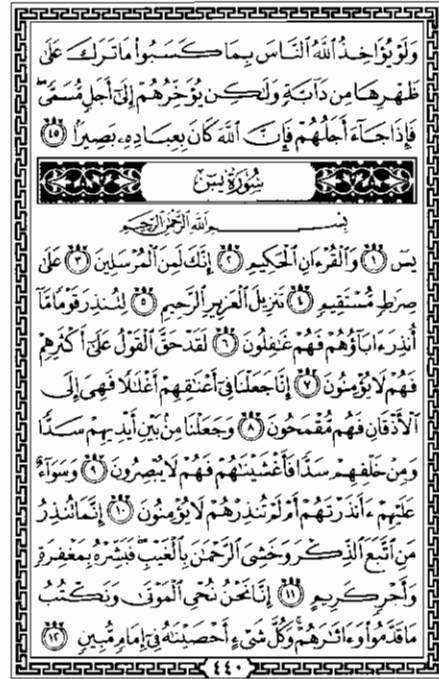 وَلَوْ يُؤَاخِذُ ٱللَّهُ ٱلنَّاسَ بِمَا كَسَبُوا۟ مَا تَرَكَ عَلَىٰ
ظَهْرِهَا مِن دَآبَّةٍ وَلَـٰكِن يُؤَخِّرُهُمْ إِلَىٰٓ أَجَلٍ مُّسَمًّى ۖ
فَإِذَا جَآءَ أَجَلُهُمْ فَإِنَّ ٱللَّهَ كَانَ بِعِبَادِهِۦ بَصِيرًۢا ٤٥
سُورَةُ يسٓ
بِسْمِ ٱللَّهِ ٱلرَّحْمَـٰنِ ٱلرَّحِيمِ
يسٓ ١ وَٱلْقُرْءَانِ ٱلْحَكِيمِ ٢ إِنَّكَ لَمِنَ ٱلْمُرْسَلِينَ ٣ عَلَىٰ
صِرَٰطٍ مُّسْتَقِيمٍ ٤ تَنزِيلَ ٱلْعَزِيزِ ٱلرَّحِيمِ ٥ لِتُنذِرَ قَوْمًا مَّآ
أُنذِرَ ءَابَآؤُهُمْ فَهُمْ غَـٰفِلُونَ ٦ لَقَدْ حَقَّ ٱلْقَوْلُ عَلَىٰٓ أَكْثَرِهِمْ
فَهُمْ لَا يُؤْمِنُونَ ٧ إِنَّا جَعَلْنَا فِىٓ أَعْنَـٰقِهِمْ أَغْلَـٰلًا فَهِىَ إِلَى
ٱلْأَذْقَانِ فَهُم مُّقْمَحُونَ ٨ وَجَعَلْنَا مِنۢ بَيْنِ أَيْدِيهِمْ سَدًّا
وَمِنْ خَلْفِهِمْ سَدًّا فَأَغْشَيْنَـٰهُمْ فَهُمْ لَا يُبْصِرُونَ ٩ وَسَوَآءٌ
عَلَيْهِمْ ءَأَنذَرْتَهُمْ أَمْ لَمْ تُنذِرْهُمْ لَا يُؤْمِنُونَ ١٠ إِنَّمَا تُنذِرُ
مَنِ ٱتَّبَعَ ٱلذِّكْرَ وَخَشِىَ ٱلرَّحْمَـٰنَ بِٱلْغَيْبِ ۖ فَبَشِّرْهُ بِمَغْفِرَةٍ
وَأَجْرٍ كَرِيمٍ ١١ إِنَّا نَحْنُ نُحْىِ ٱلْمَوْتَىٰ وَنَكْتُبُ
مَا قَدَّمُوا۟ وَءَاثَـٰرَهُمْ ۚ وَكُلَّ شَىْءٍ أَحْصَيْنَـٰهُ فِىٓ إِمَامٍ مُّبِينٍ ١٢
٤٤٠